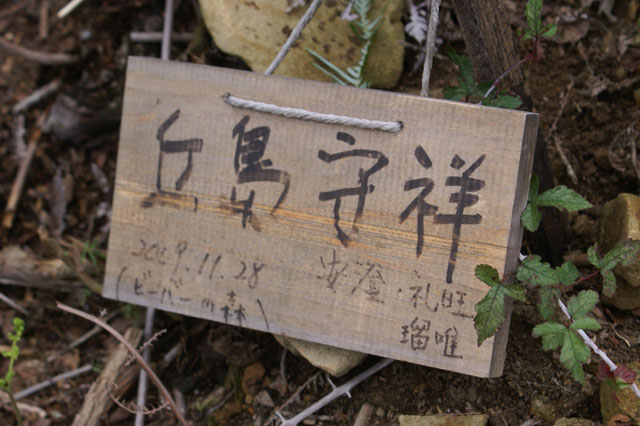 丘島守祥
2009.11.28
澄・礼旺
(ビーバーの森)
瑠唯